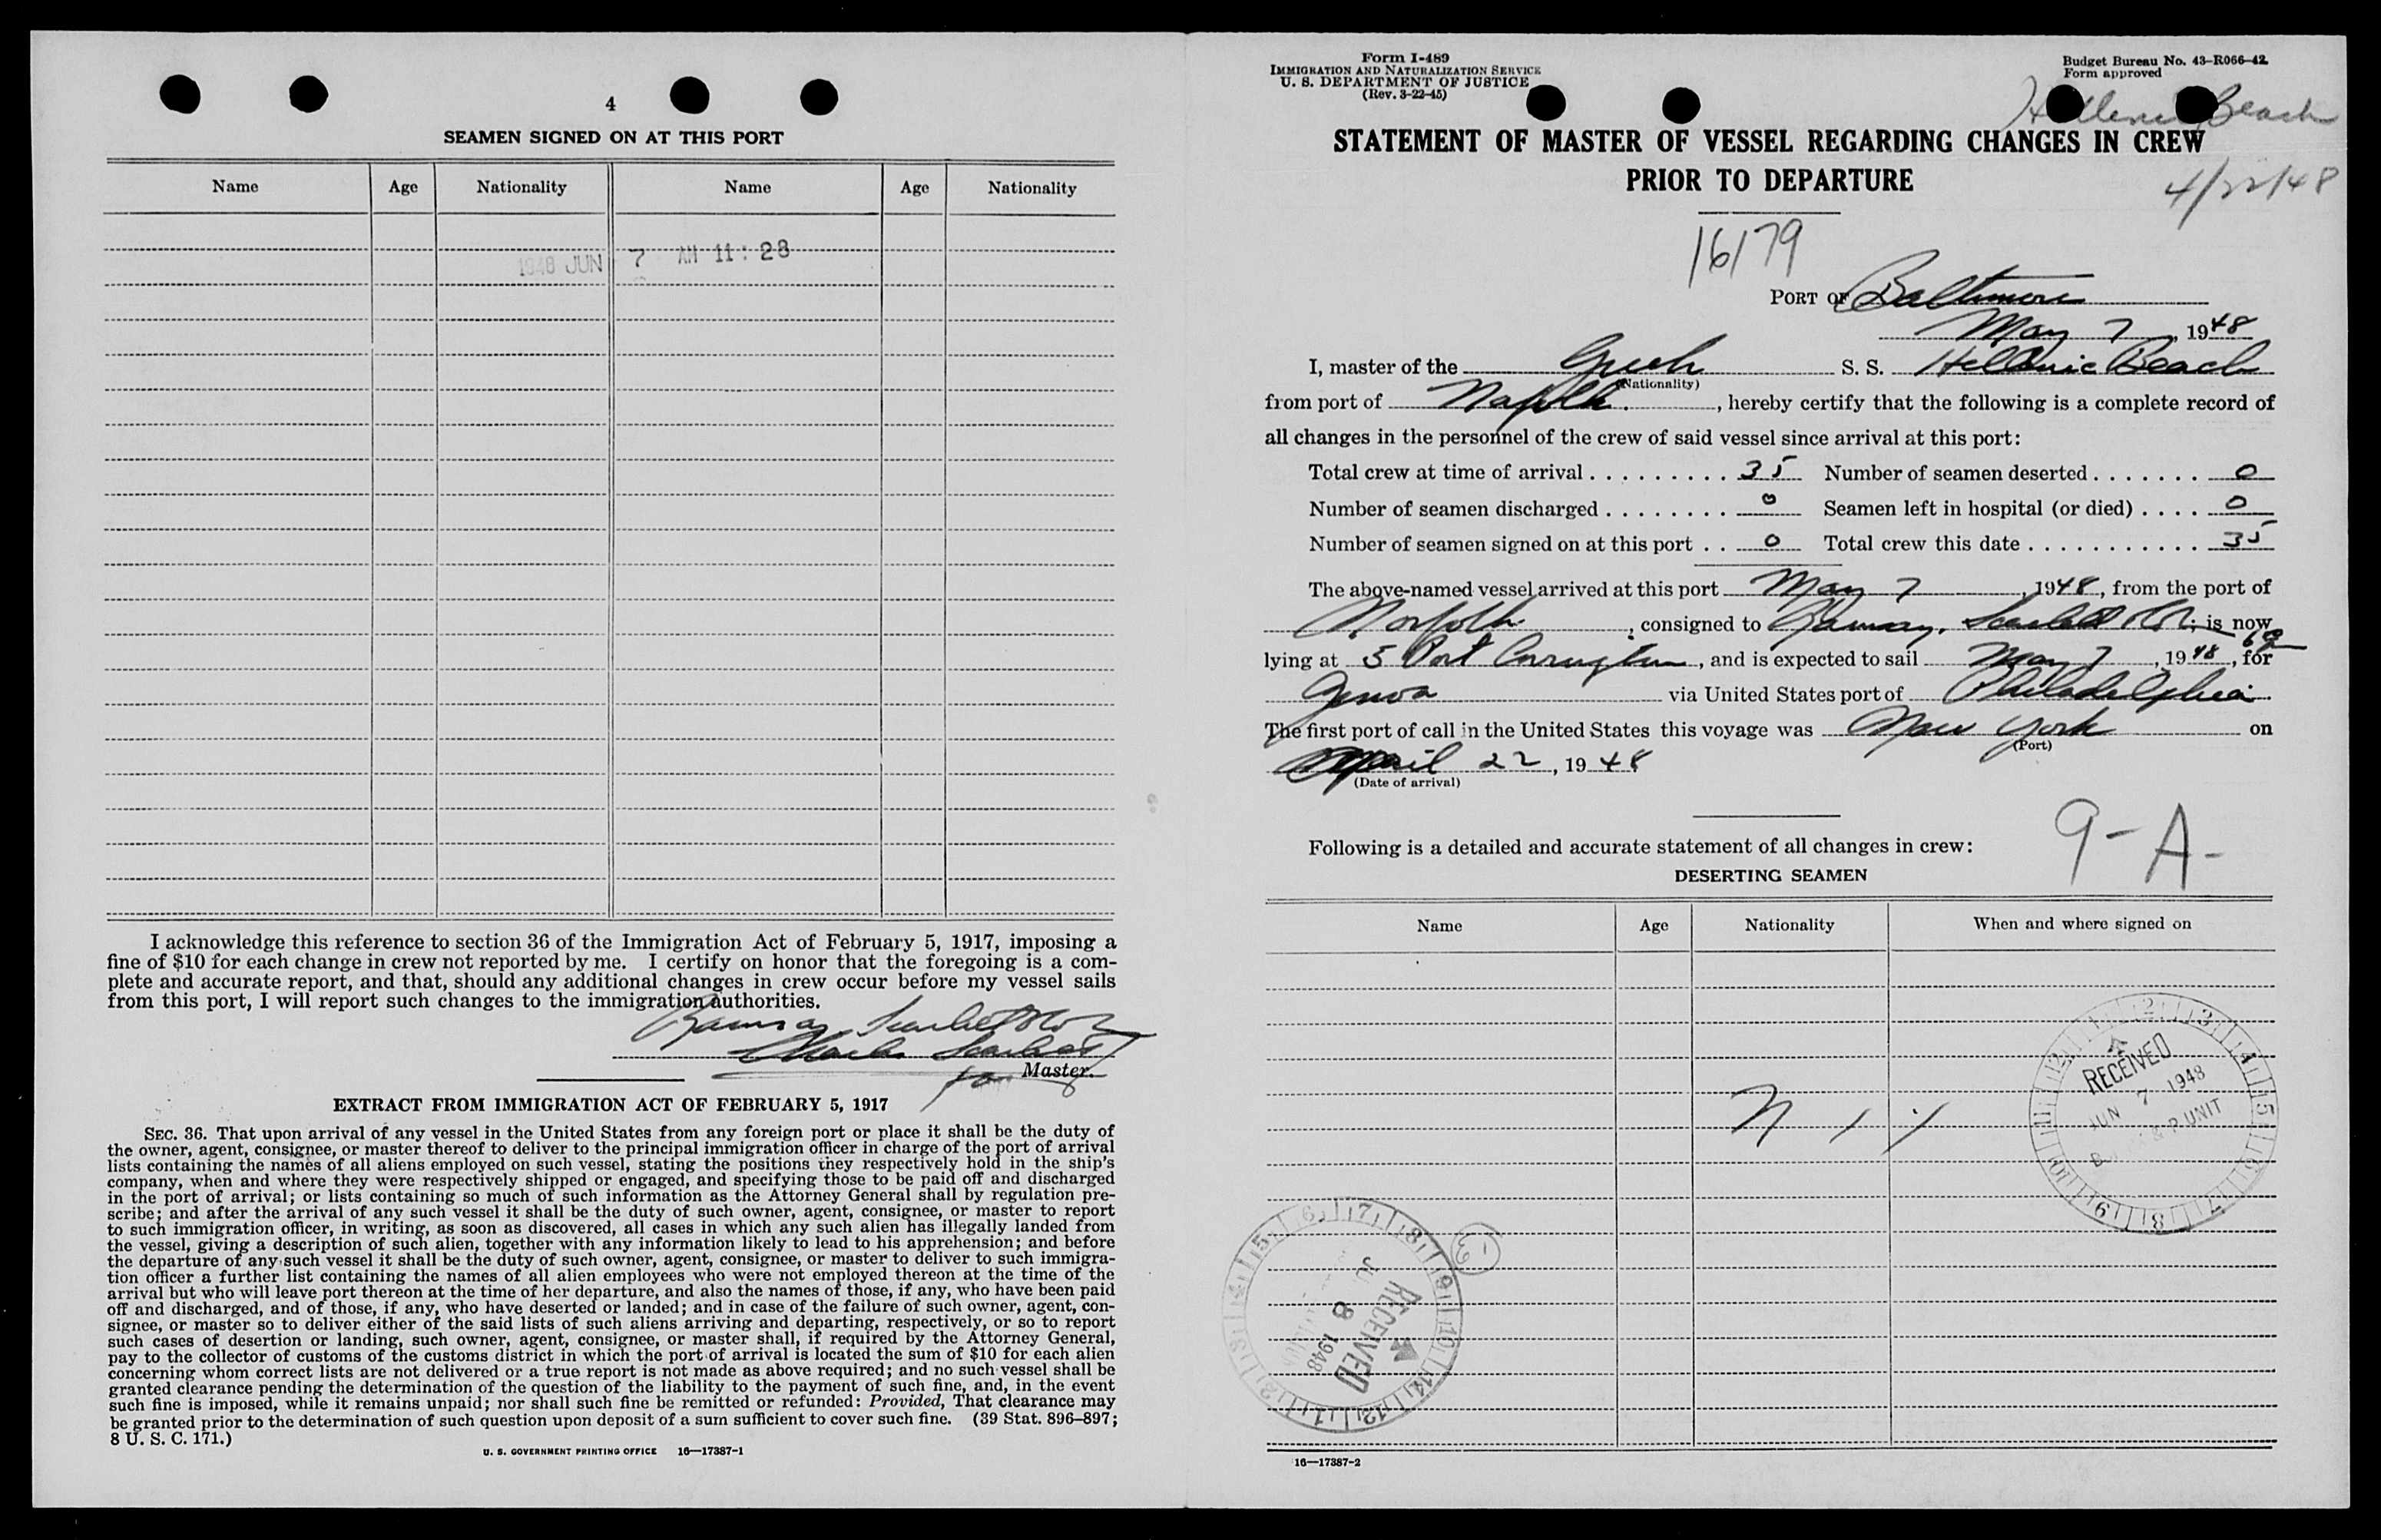 4
SEAMEN SIGNED ON AT THIS PORT
Name Age Nationality Name Age Nationality
1948 JUN 7 AM 11:28
I acknowledge this reference to section 36 of the Immigration Act of February 5, 1917, imposing a
fine of $10 for each change in crew not reported by me. I certify on honor that the foregoing is a com-
plete and accurate report, and that, should any additional changes in crew occur before my vessel sails
from this port, I will report such changes to the immigration authorities.
Ramsay, Scarlett & Co
Charles Scarlett
for Master.
EXTRACT FROM IMMIGRATION ACT OF FEBRUARY 5, 1917
SEC. 36. That upon arrival of any vessel in the United States from any foreign port or place it shall be the duty of
the owner, agent, consignee, or master thereof to deliver to the principal immigration officer in charge of the port of arrival
lists containing the names of all aliens employed on such vessel, stating the positions they respectively hold in the ship's
company, when and where they were respectively shipped or engaged, and specifying those to be paid off and discharged
in the port of arrival; or lists containing so much of such information as the Attorney General shall by regulation pre-
scribe; and after the arrival of any such vessel it shall be the duty of such owner, agent, consignee, or master to report
to such immigration officer, in writing, as soon as discovered, all cases in which any such alien has illegally landed from
the vessel, giving a description of such alien, together with any information likely to lead to his apprehension; and before
the departure of any such vessel it shall be the duty of such owner, agent, consignee, or master to deliver to such immigra-
tion officer a further list containing the names of all alien employees who were not employed thereon at the time of the
arrival but who will leave port thereon at the time of her departure, and also the names of those, if any, who have been paid
off and discharged, and of those, if any, who have deserted or landed; and in case of the failure of such owner, agent, con-
signee, or master so to deliver either of the said lists of such aliens arriving and departing, respectively, or so to report
such cases of desertion or landing, such owner, agent, consignee, or master shall, if required by the Attorney General,
pay to the collector of customs of the customs district in which the port of arrival is located the sum of $10 for each alien
concerning whom correct lists are not delivered or a true report is not made as above required; and no such vessel shall be
granted clearance pending the determination of the question of the liability to the payment of such fine, and, in the event
such fine is imposed, while it remains unpaid; nor shall such fine be remitted or refunded: Provided, That clearance may
be granted prior to the determination of such question upon deposit of a sum sufficient to cover such fine. (39 Stat. 896–897;
8 U. S. C. 171.)
U. S. GOVERNMENT PRINTING OFFICE 16—17387-1
Form I-489
IMMIGRATION AND NATURALIZATION SERVICE
U. S. DEPARTMENT OF JUSTICE
(Rev. 3-22-45)
Budget Bureau No. 43-R066-42
Form approved
Hellenic Beach
STATEMENT OF MASTER OF VESSEL REGARDING CHANGES IN CREW
PRIOR TO DEPARTURE
4/22/48
16179
PORT OF Baltimore
May 7, 1948
I, master of the Greek S. S. Hellenic Beach
(Nationality)
from port of Norfolk, hereby certify that the following is a complete record of
all changes in the personnel of the crew of said vessel since arrival at this port:
Total crew at time of arrival 35 Number of seamen deserted 0
Number of seamen discharged 0 Seamen left in hospital (or died) 0
Number of seamen signed on at this port 0 Total crew this date 35
The above-named vessel arrived at this port May 7, 1948, from the port of
Norfolk, consigned to Ramsay, Scarlett & Co; is now
lying at 5 Port Covington, and is expected to sail May 7, 1948, for
Genoa via United States port of Philadelphia
The first port of call in the United States this voyage was New York on
(Port)
April 22, 1948
(Date of arrival)
9-A-
Following is a detailed and accurate statement of all changes in crew:
DESERTING SEAMEN
Name Age Nationality When and where signed on
RECEIVED
JUN 7 1948
P. UNIT
N i l
RECEIVED
8 1948
16—17387-2